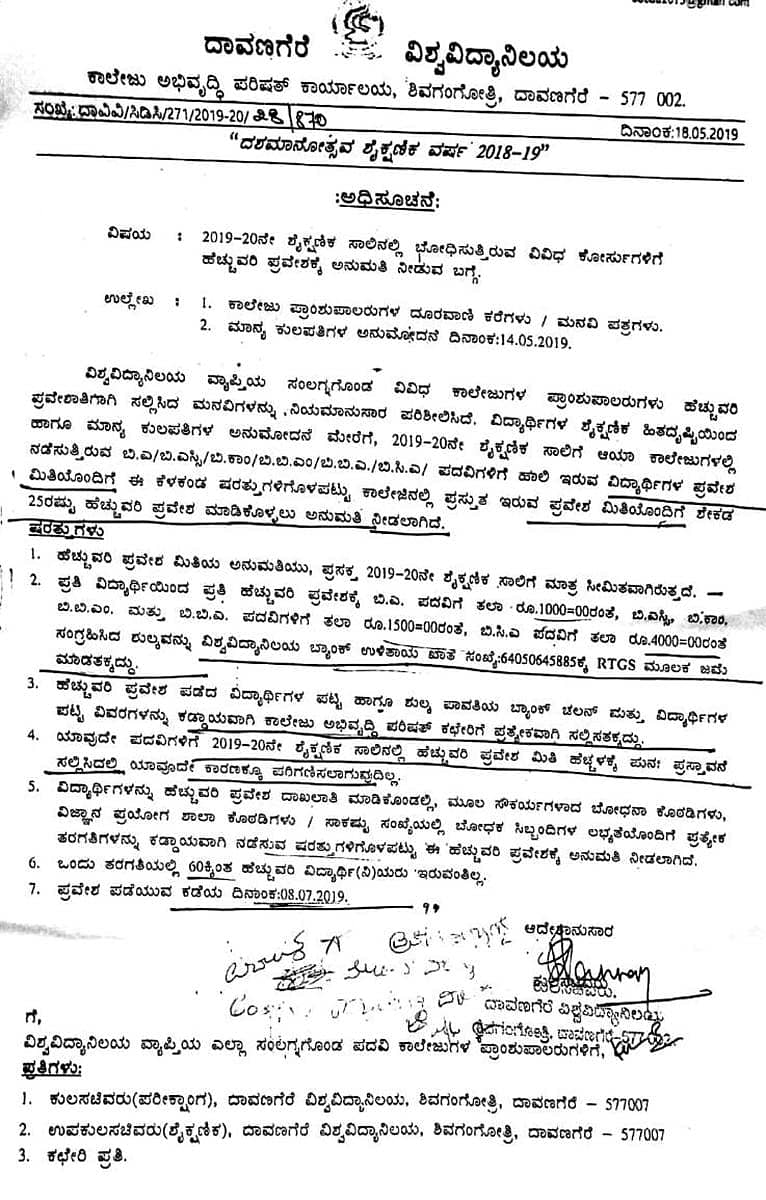 ದಾವಣಗೆರೆ ವಿಶ್ವವಿದ್ಯಾನಿಲಯ
ಕಾಲೇಜು ಅಭಿವೃದ್ಧಿ ಪರಿಷತ್ ಕಾರ್ಯಾಲಯ, ಶಿವಗಂಗೋತ್ರಿ, ದಾವಣಗೆರೆ – 577 002.
ಸಂಖ್ಯೆ:ದಾವಿವಿ/ಸಿಡಿಸಿ/271/2019-20/
ದಿನಾಂಕ:18.05.2019
“ದಶಮಾನೋತ್ಸವ ಶೈಕ್ಷಣಿಕ ವರ್ಷ 2018-19”
:ಅಧಿಸೂಚನೆ:
ವಿಷಯ : 2019-20ನೇ ಶೈಕ್ಷಣಿಕ ಸಾಲಿನಲ್ಲಿ ಬೋಧಿಸುತ್ತಿರುವ ವಿವಿಧ ಕೋರ್ಸುಗಳಿಗೆ
ಹೆಚ್ಚುವರಿ ಪ್ರವೇಶಕ್ಕೆ ಅನುಮತಿ ನೀಡುವ ಬಗ್ಗೆ.
ಉಲ್ಲೇಖ : 1. ಕಾಲೇಜು ಪ್ರಾಂಶುಪಾಲರುಗಳ ದೂರವಾಣಿ ಕರೆಗಳು / ಮನವಿ ಪತ್ರಗಳು.
2. ಮಾನ್ಯ ಕುಲಪತಿಗಳ ಅನುಮೋದನೆ ದಿನಾಂಕ:14.05.2019.
ವಿಶ್ವವಿದ್ಯಾನಿಲಯ ವ್ಯಾಪ್ತಿಯ ಸಂಲಗ್ನಗೊಂಡ ವಿವಿಧ ಕಾಲೇಜುಗಳ ಪ್ರಾಂಶುಪಾಲರುಗಳು ಹೆಚ್ಚುವರಿ
ಪ್ರವೇಶಾತಿಗಾಗಿ ಸಲ್ಲಿಸಿದ ಮನವಿಗಳನ್ನು ನಿಯಮಾನುಸಾರ ಪರಿಶೀಲಿಸಿದೆ. ವಿದ್ಯಾರ್ಥಿಗಳ ಶೈಕ್ಷಣಿಕ ಹಿತದೃಷ್ಟಿಯಿಂದ
ಹಾಗೂ ಮಾನ್ಯ ಕುಲಪತಿಗಳ ಅನುಮೋದನೆ ಮೇರೆಗೆ, 2019-20ನೇ ಶೈಕ್ಷಣಿಕ ಸಾಲಿಗೆ ಆಯಾ ಕಾಲೇಜುಗಳಲ್ಲಿ
ನಡೆಸುತ್ತಿರುವ ಬಿ.ಎ/ಬಿ.ಎಸ್ಸಿ/ಬಿ.ಕಾಂ/ಬಿ.ಬಿ.ಎಂ/ಬಿ.ಬಿ.ಎ./ಬಿ.ಸಿ.ಎ/ ಪದವಿಗಳಿಗೆ ಹಾಲಿ ಇರುವ ವಿದ್ಯಾರ್ಥಿಗಳ ಪ್ರವೇಶ
ಮಿತಿಯೊಂದಿಗೆ ಈ ಕೆಳಕಂಡ ಷರತ್ತುಗಳಿಗೊಳಪಟ್ಟು ಕಾಲೇಜಿನಲ್ಲಿ ಪ್ರಸ್ತುತ ಇರುವ ಪ್ರವೇಶ ಮಿತಿಯೊಂದಿಗೆ ಶೇಕಡ
25ರಷ್ಟು ಹೆಚ್ಚುವರಿ ಪ್ರವೇಶ ಮಾಡಿಕೊಳ್ಳಲು ಅನುಮತಿ ನೀಡಲಾಗಿದೆ.
ಷರತ್ತುಗಳು
1. ಹೆಚ್ಚುವರಿ ಪ್ರವೇಶ ಮಿತಿಯ ಅನುಮತಿಯು, ಪ್ರಸಕ್ತ 2019-20ನೇ ಶೈಕ್ಷಣಿಕ ಸಾಲಿಗೆ ಮಾತ್ರ ಸೀಮಿತವಾಗಿರುತ್ತದೆ.
2. ಪ್ರತಿ ವಿದ್ಯಾರ್ಥಿಯಿಂದ ಪ್ರತಿ ಹೆಚ್ಚುವರಿ ಪ್ರವೇಶಕ್ಕೆ ಬಿ.ಎ. ಪದವಿಗೆ ತಲಾ ರೂ.1000=00ರಂತೆ, ಬಿ.ಎಸ್ಸಿ, ಬಿ.ಕಾಂ.
ಬಿ.ಬಿ.ಎಂ. ಮತ್ತು ಬಿ.ಬಿ.ಎ. ಪದವಿಗಳಿಗೆ ತಲಾ ರೂ.1500=00ರಂತೆ, ಬಿ.ಸಿ.ಎ ಪದವಿಗೆ ತಲಾ ರೂ.4000=00ರಂತೆ
ಸಂಗ್ರಹಿಸಿದ ಶುಲ್ಕವನ್ನು ವಿಶ್ವವಿದ್ಯಾನಿಲಯ ಬ್ಯಾಂಕ್ ಉಳಿತಾಯ ಖಾತೆ ಸಂಖ್ಯೆ:64050645885ಕ್ಕೆ RTGS ಮೂಲಕ ಜಮೆ
ಮಾಡತಕ್ಕದ್ದು.
3. ಹೆಚ್ಚುವರಿ ಪ್ರವೇಶ ಪಡೆದ ವಿದ್ಯಾರ್ಥಿಗಳ ಪಟ್ಟಿ ಹಾಗೂ ಶುಲ್ಕ ಪಾವತಿಯ ಬ್ಯಾಂಕ್ ಚಲನ್ ಮತ್ತು ವಿದ್ಯಾರ್ಥಿಗಳ
ಪಟ್ಟಿ ವಿವರಗಳನ್ನು ಕಡ್ಡಾಯವಾಗಿ ಕಾಲೇಜು ಅಭಿವೃದ್ಧಿ ಪರಿಷತ್ ಕಛೇರಿಗೆ ಪ್ರತ್ಯೇಕವಾಗಿ ಸಲ್ಲಿಸತಕ್ಕದ್ದು.
4. ಯಾವುದೇ ಪದವಿಗಳಿಗೆ 2019-20ನೇ ಶೈಕ್ಷಣಿಕ ಸಾಲಿನಲ್ಲಿ ಹೆಚ್ಚುವರಿ ಪ್ರವೇಶ ಮಿತಿ ಹೆಚ್ಚಳಕ್ಕೆ ಪುನಃ ಪ್ರಸ್ತಾವನೆ
ಸಲ್ಲಿಸಿದಲ್ಲಿ ಯಾವುದೇ ಕಾರಣಕ್ಕೂ ಪರಿಗಣಿಸಲಾಗುವುದಿಲ್ಲ.
5. ವಿದ್ಯಾರ್ಥಿಗಳನ್ನು ಹೆಚ್ಚುವರಿ ಪ್ರವೇಶ ದಾಖಲಾತಿ ಮಾಡಿಕೊಂಡಲ್ಲಿ, ಮೂಲ ಸೌಕರ್ಯಗಳಾದ ಬೋಧನಾ ಕೊಠಡಿಗಳು,
ವಿಜ್ಞಾನ ಪ್ರಯೋಗ ಶಾಲಾ ಕೊಠಡಿಗಳು / ಸಾಕಷ್ಟು ಸಂಖ್ಯೆಯಲ್ಲಿ ಬೋಧಕ ಸಿಬ್ಬಂದಿಗಳ ಲಭ್ಯತೆಯೊಂದಿಗೆ ಪ್ರತ್ಯೇಕ
ತರಗತಿಗಳನ್ನು ಕಡ್ಡಾಯವಾಗಿ ನಡೆಸುವ ಷರತ್ತುಗಳಿಗೊಳಪಟ್ಟು ಈ ಹೆಚ್ಚುವರಿ ಪ್ರವೇಶಕ್ಕೆ ಅನುಮತಿ ನೀಡಲಾಗಿದೆ.
6. ಒಂದು ತರಗತಿಯಲ್ಲಿ 60ಕ್ಕಿಂತ ಹೆಚ್ಚುವರಿ ವಿದ್ಯಾರ್ಥಿ(ನಿ)ಯರು ಇರುವಂತಿಲ್ಲ.
7. ಪ್ರವೇಶ ಪಡೆಯುವ ಕಡೆಯ ದಿನಾಂಕ:08.07.2019.
ಆದೇಶಾನುಸಾರ
ಕುಲಸಚಿವರು.
ದಾವಣಗೆರೆ ವಿಶ್ವವಿದ್ಯಾನಿಲಯ
ಶಿವಗಂಗೋತ್ರಿ, ದಾವಣಗೆರೆ-577002.
ಗೆ,
ವಿಶ್ವವಿದ್ಯಾನಿಲಯ ವ್ಯಾಪ್ತಿಯ ಎಲ್ಲಾ ಸಂಲಗ್ನಗೊಂಡ ಪದವಿ ಕಾಲೇಜುಗಳ ಪ್ರಾಂಶುಪಾಲರುಗಳಿಗೆ,
ಪ್ರತಿಗಳು:
1. ಕುಲಸಚಿವರು(ಪರೀಕ್ಷಾಂಗ), ದಾವಣಗೆರೆ ವಿಶ್ವವಿದ್ಯಾನಿಲಯ, ಶಿವಗಂಗೋತ್ರಿ, ದಾವಣಗೆರೆ – 577007
2. ಉಪಕುಲಸಚಿವರು(ಶೈಕ್ಷಣಿಕ), ದಾವಣಗೆರೆ ವಿಶ್ವವಿದ್ಯಾನಿಲಯ, ಶಿವಗಂಗೋತ್ರಿ, ದಾವಣಗೆರೆ – 577007
3. ಕಛೇರಿ ಪ್ರತಿ.